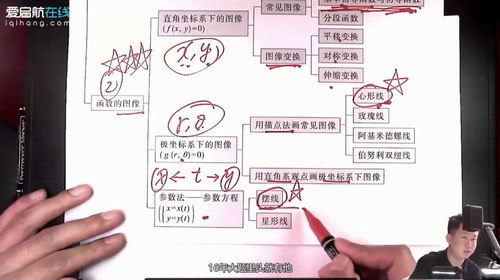 爱启航在线
iqihang.com
直角坐标系下的图像
(f(x, y)=0)
常见图像
分段函数
图像变换
平移变换
对称变换
伸缩变换
x, y
②
函数的图像
r, θ
极坐标系下的图像
(g(r, θ)=0)
用描点法画常见图像
心形线
玫瑰线
阿基米德螺线
伯努利双纽线
用直角系观点画极坐标系下图像
x ← t → y
参数法——参数方程
x=x(t)
y=y(t)
摆线
星形线
16年大题里头就有他